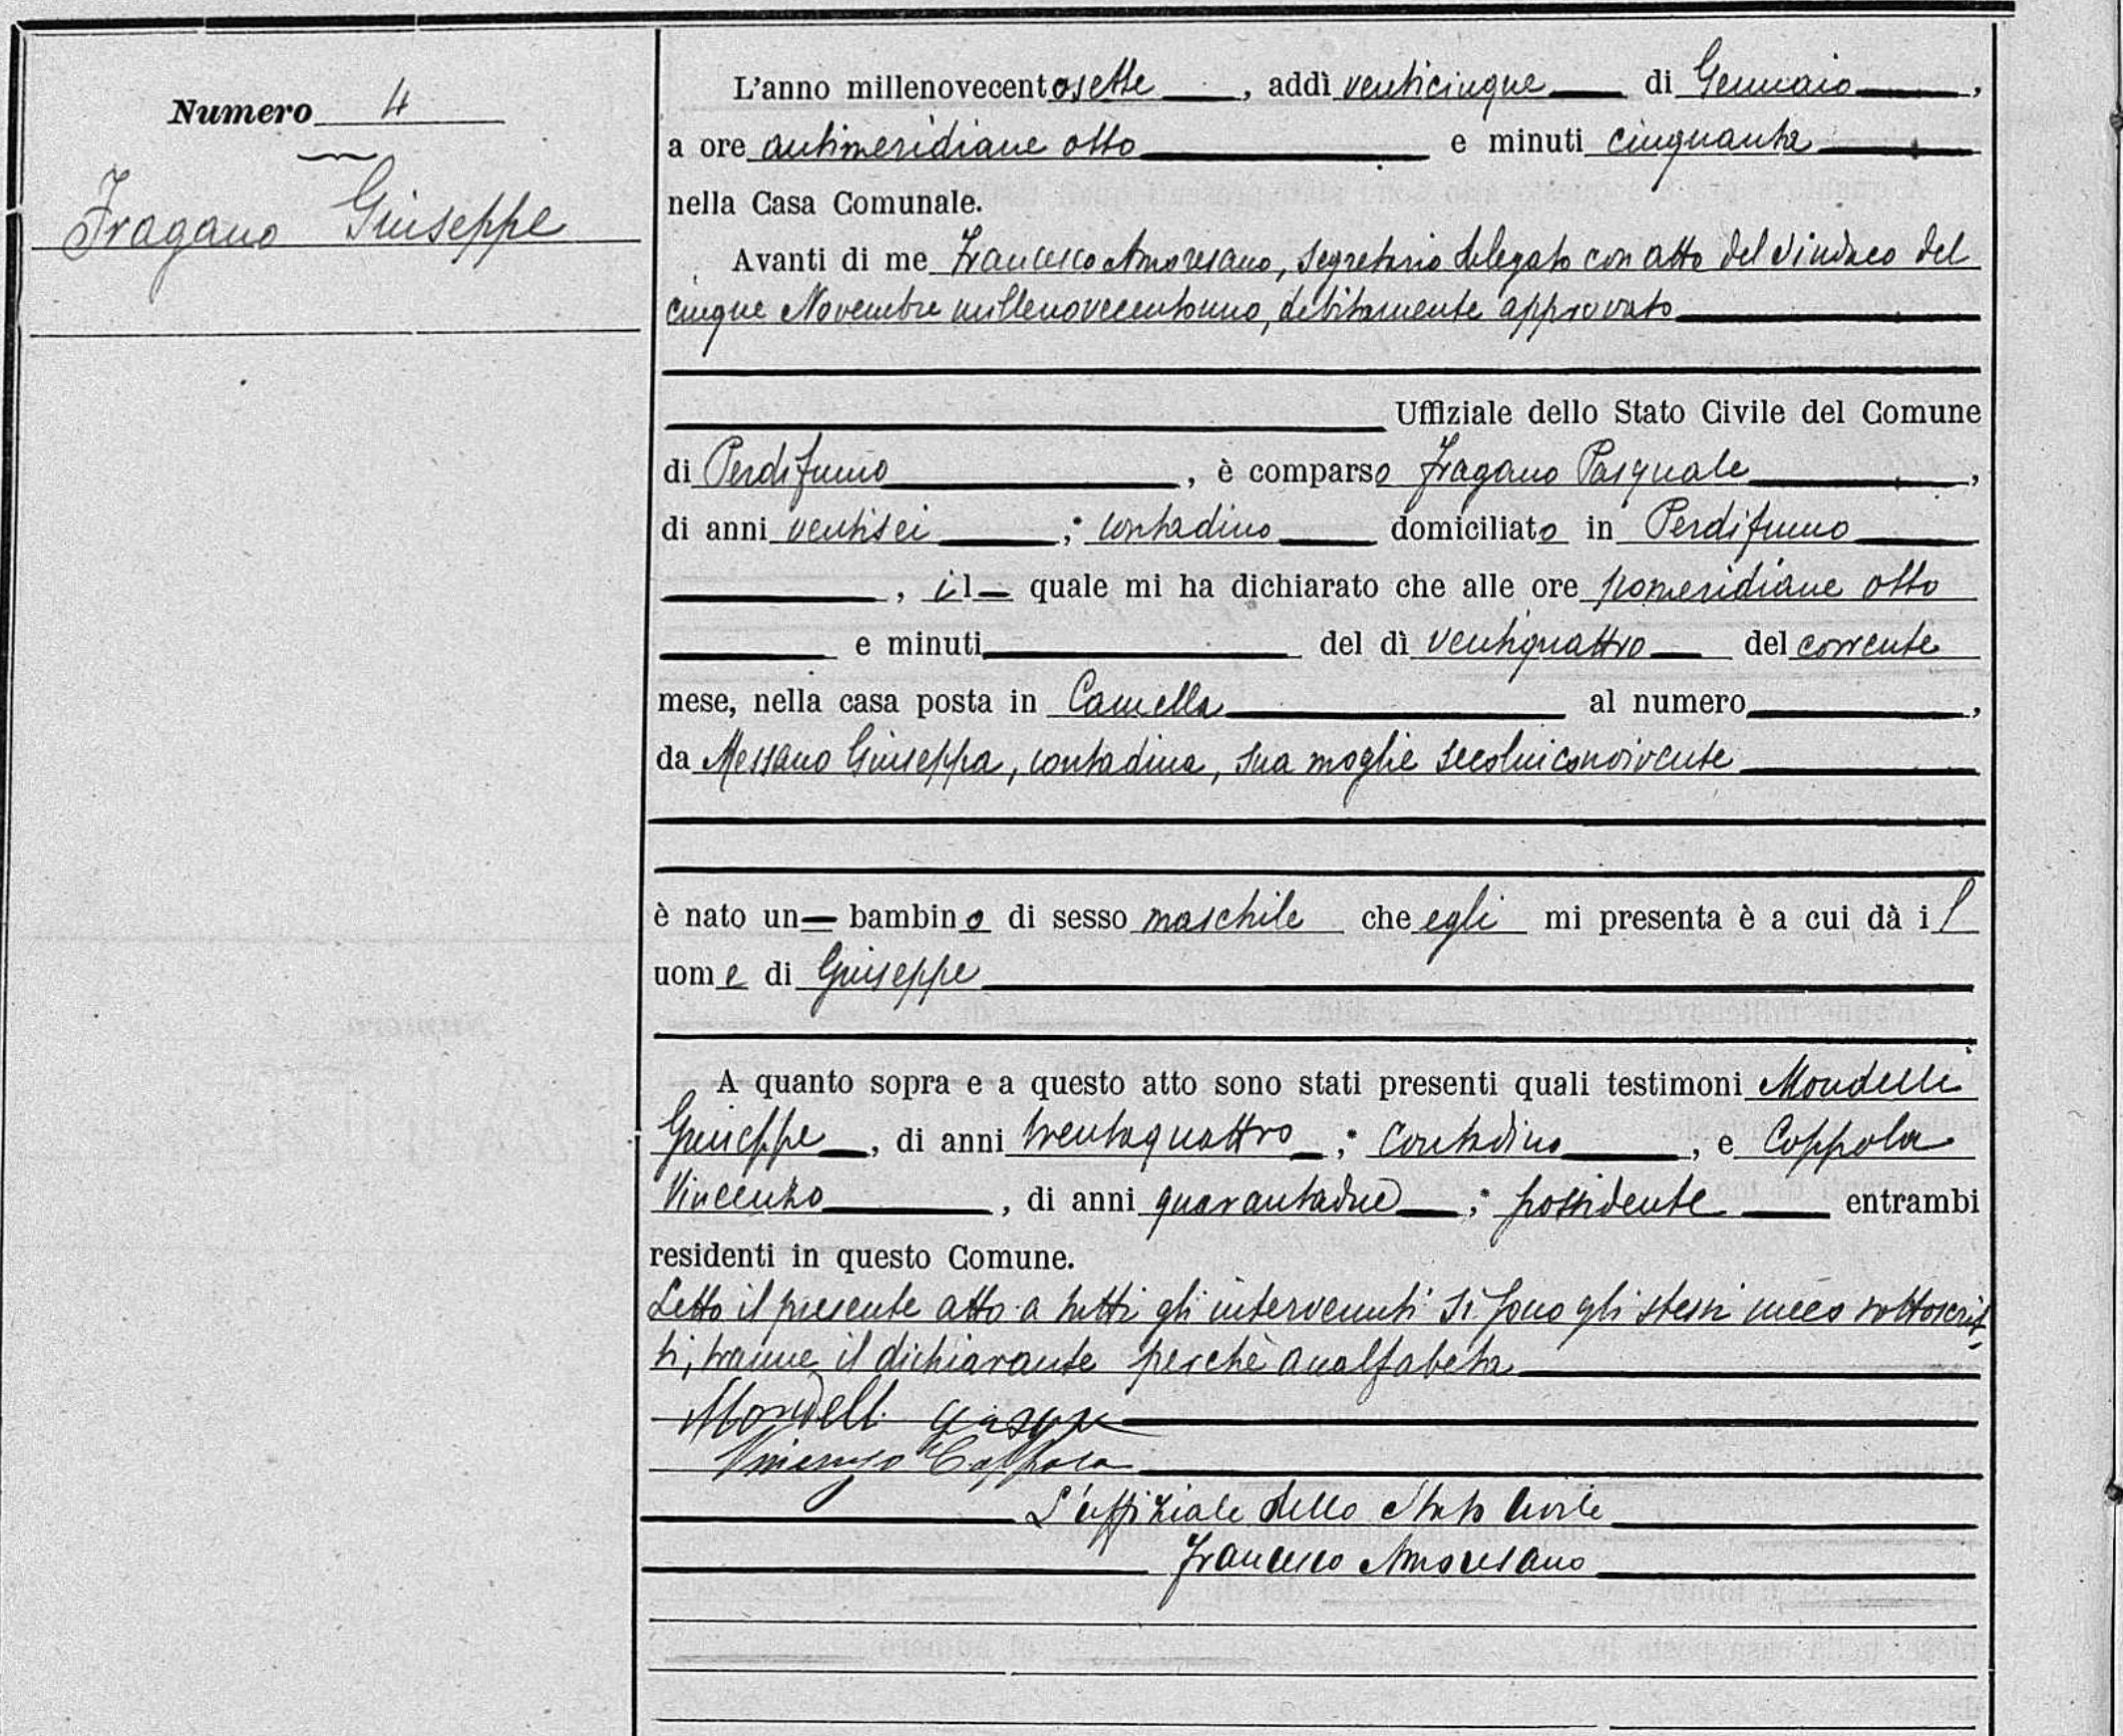 Numero 4
Fragano Giuseppe
L'anno millenovecentosette, addì venticinque di Gennaio,
a ore antimeridiane otto e minuti cinquanta
nella Casa Comunale.
Avanti di me Francesco Amoresano, segretario delegato con atto del Sindaco del
cinque Novembre millenovecentouno, debitamente approvato
Uffiziale dello Stato Civile del Comune
di Perdifumo, è comparso Fragano Pasquale,
di anni ventisei; contadino domiciliato in Perdifumo
, il quale mi ha dichiarato che alle ore pomeridiane otto
e minuti del dì ventiquattro del corrente
mese, nella casa posta in Camella al numero,
da Messano Giuseppa, contadina, sua moglie secolui convivente
è nato un bambino di sesso maschile che egli mi presenta è a cui dà il
nome di Giuseppe
A quanto sopra e a questo atto sono stati presenti quali testimoni Mondelli
Giuseppe, di anni trentaquattro; contadino, e Coppola
Vincenzo, di anni quarantadue; possidente entrambi
residenti in questo Comune.
Letto il presente atto a tutti gli intervenuti si sono gli stessi meco sottoscrit-
ti, tranne il dichiarante perchè analfabeta
Mondelli
Vincenzo Coppola
L'uffiziale dello Stato Civile
Francesco Amoresano